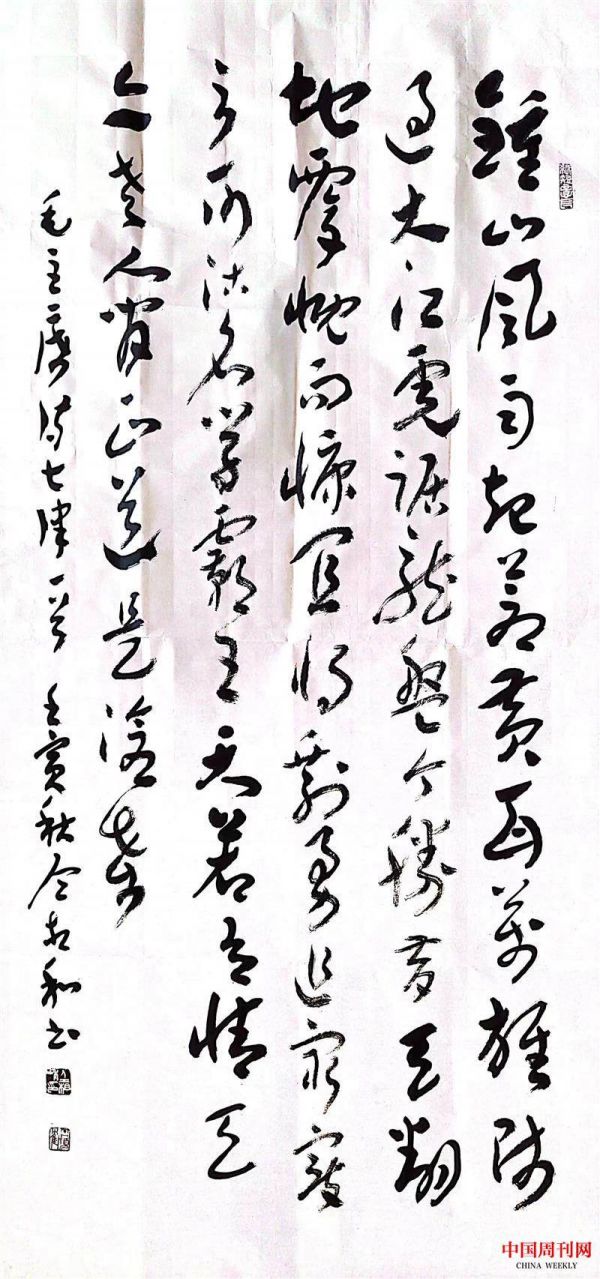 鍾山風雨起蒼黄百萬雄師
過大江虎踞龍盤今勝昔天翻
地覆慨而慷宜將剩勇追窮寇
不可沽名學霸王天若有情天
亦老人間正道是滄桑
毛主席詩七律一首 壬寅秋 和书
中国周刊网
CHINA WEEKLY